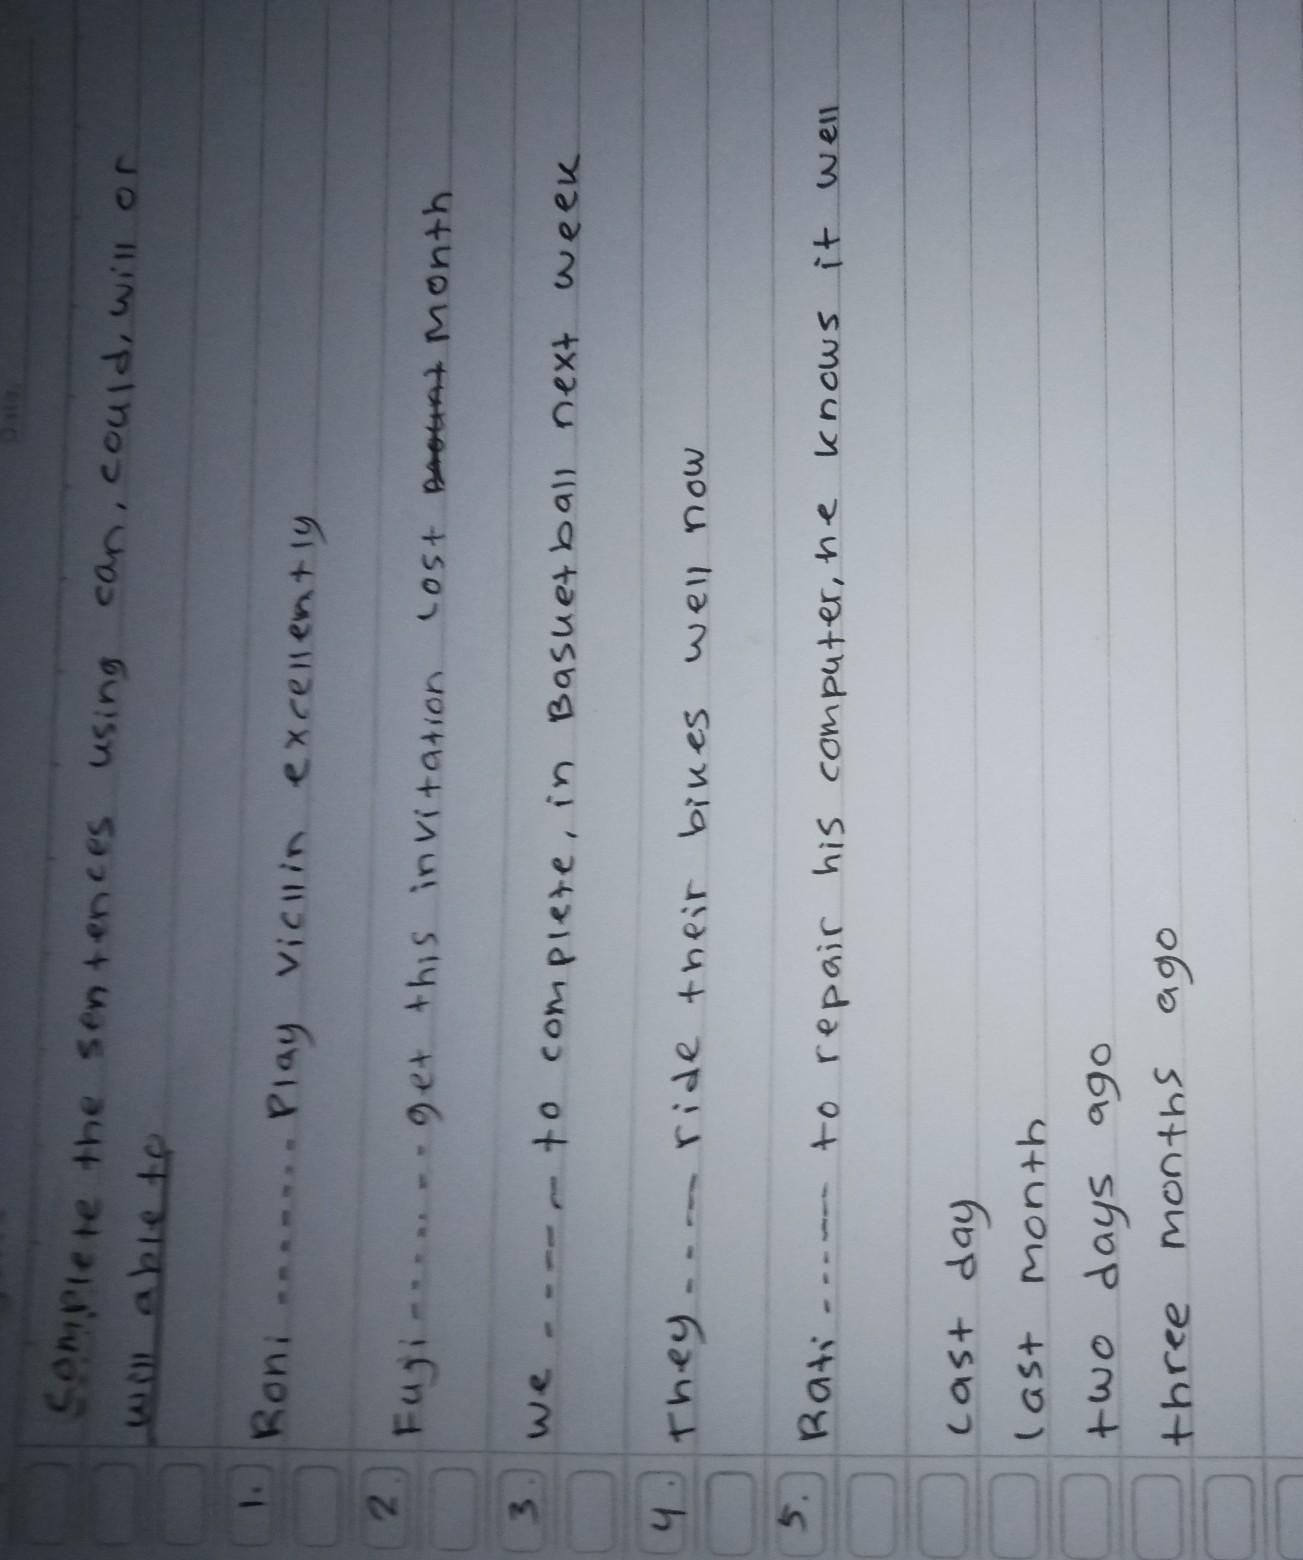 Complete the sentences using can, could, will or
will able to
1. Roni ......... Play vicllin excellently
2. Fuji ......... get this invitation Lost Month
3. we ------ to complete, in Basketball next week
4. They ----- ride their bikes well now
5. Rati ------ to repair his computer, he knows it well
Last day
last month
two days ago
three months ago